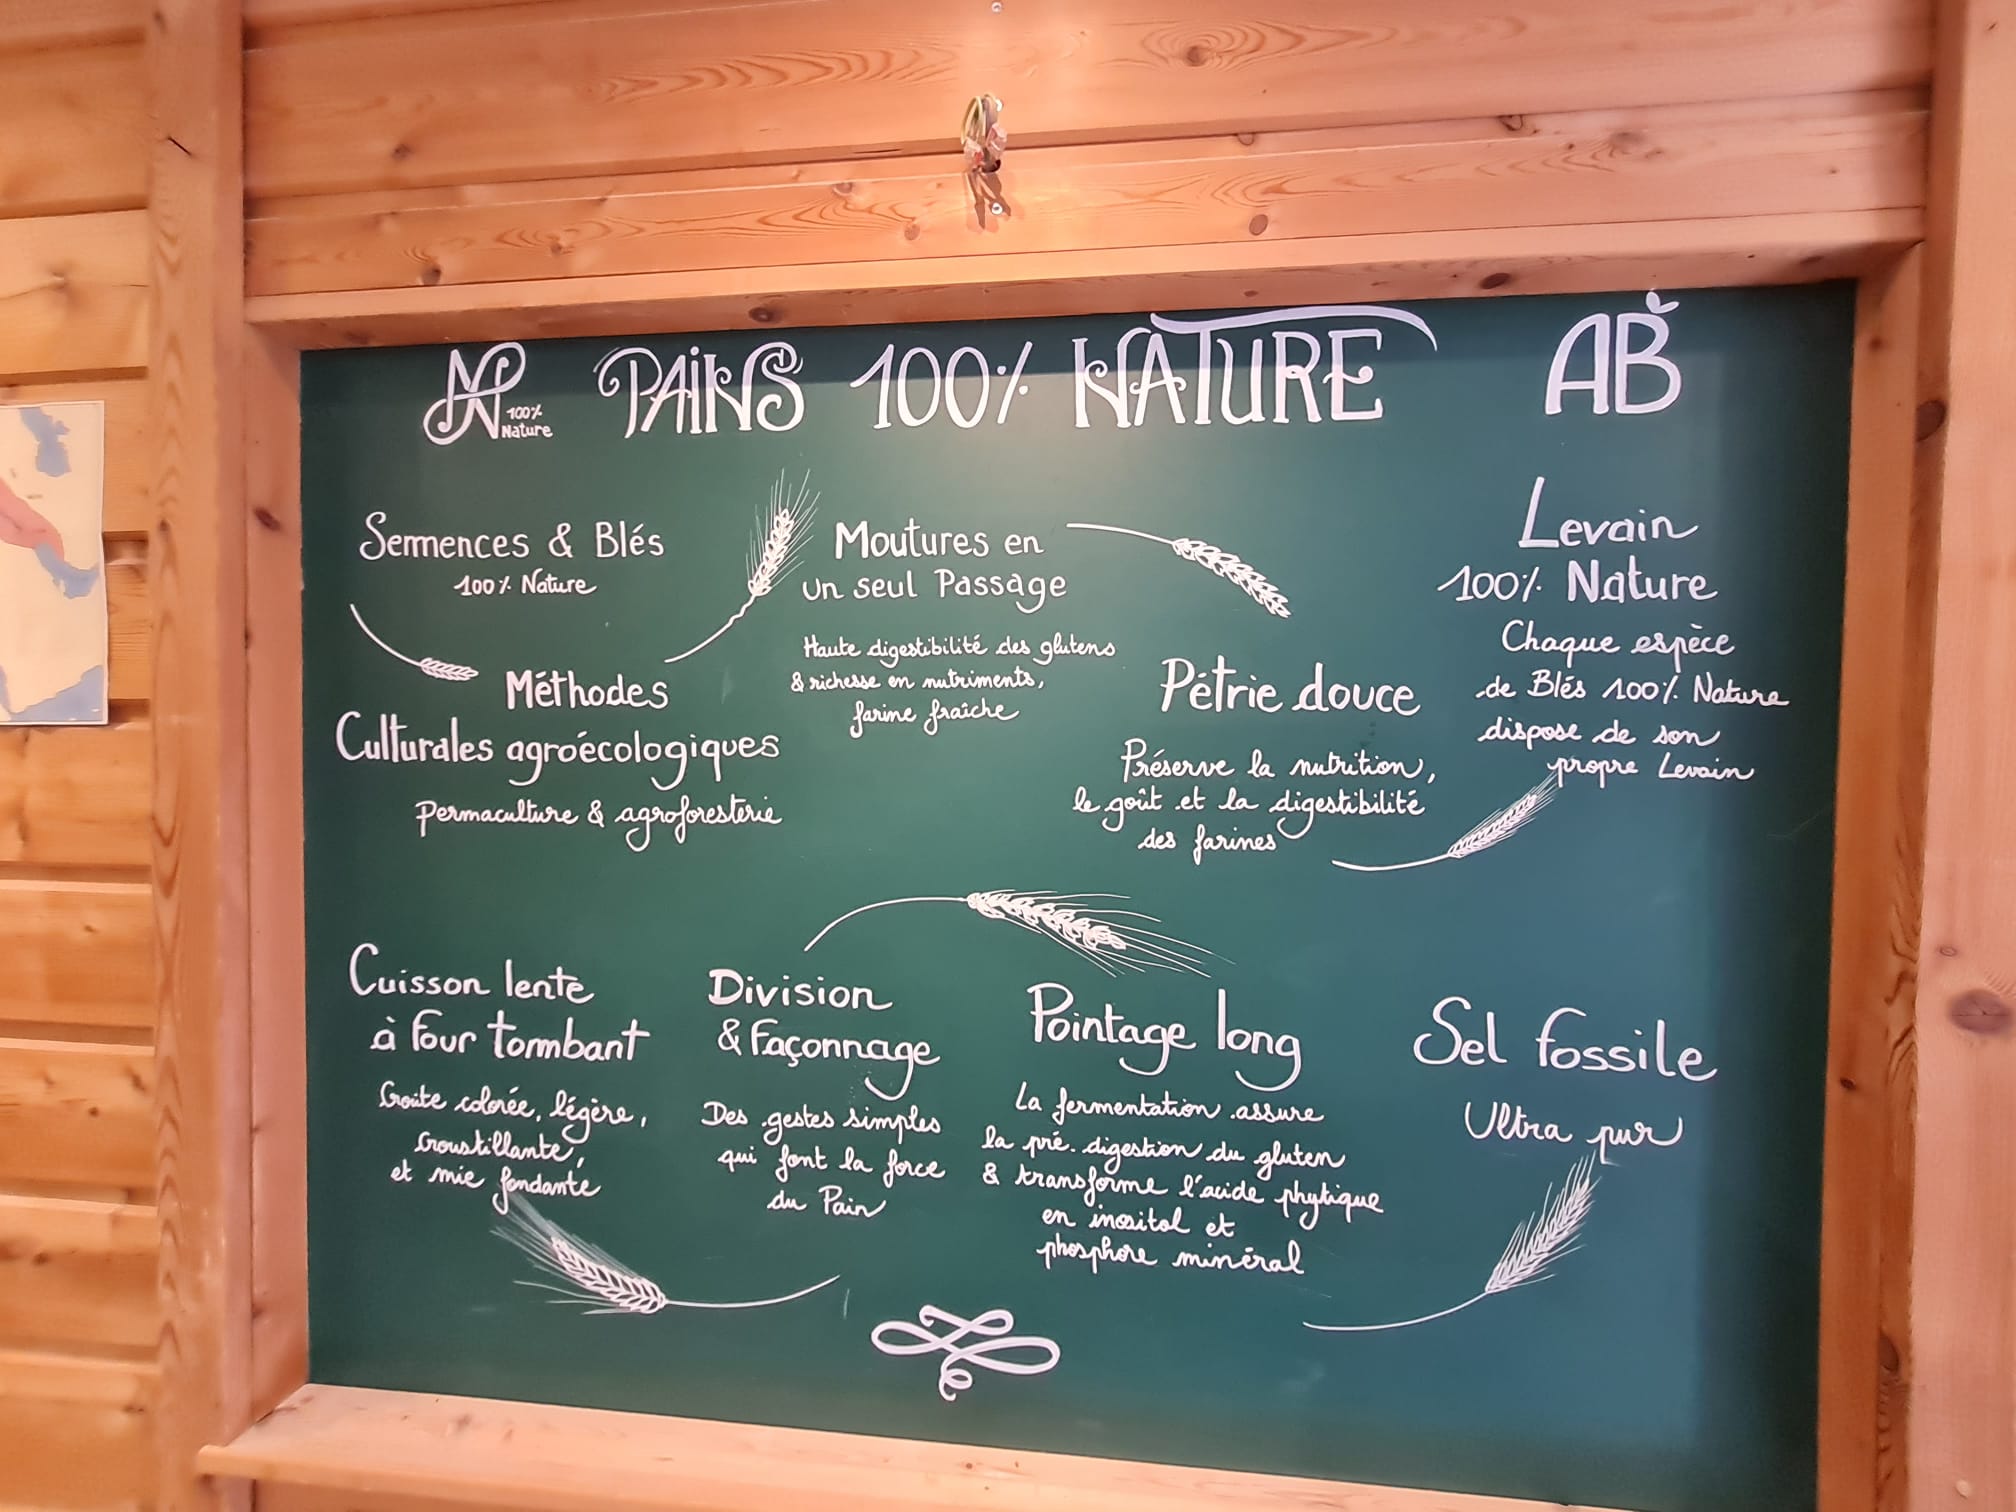 100% Nature
PAINS 100% NATURE
AB
Semences & Blés
100% Nature
Méthodes
Culturales agroécologiques
permaculture & agroforesterie
Moutures en
un seul Passage
Haute digestibilité des glutens
& richesse en nutriments,
farine fraîche
Pétrie douce
Préserve la nutrition,
le goût et la digestibilité
des farines
Levain
100% Nature
Chaque espèce
de Blés 100% Nature
dispose de son
propre Levain
Cuisson lente
à four tombant
Croûte colorée, légère,
croustillante,
et mie fondante
Division
& Façonnage
Des gestes simples
qui font la force
du Pain
Pointage long
La fermentation assure
la pré-digestion du gluten
& transforme l'acide phytique
en inositol et
phosphore minéral
Sel fossile
Ultra pur